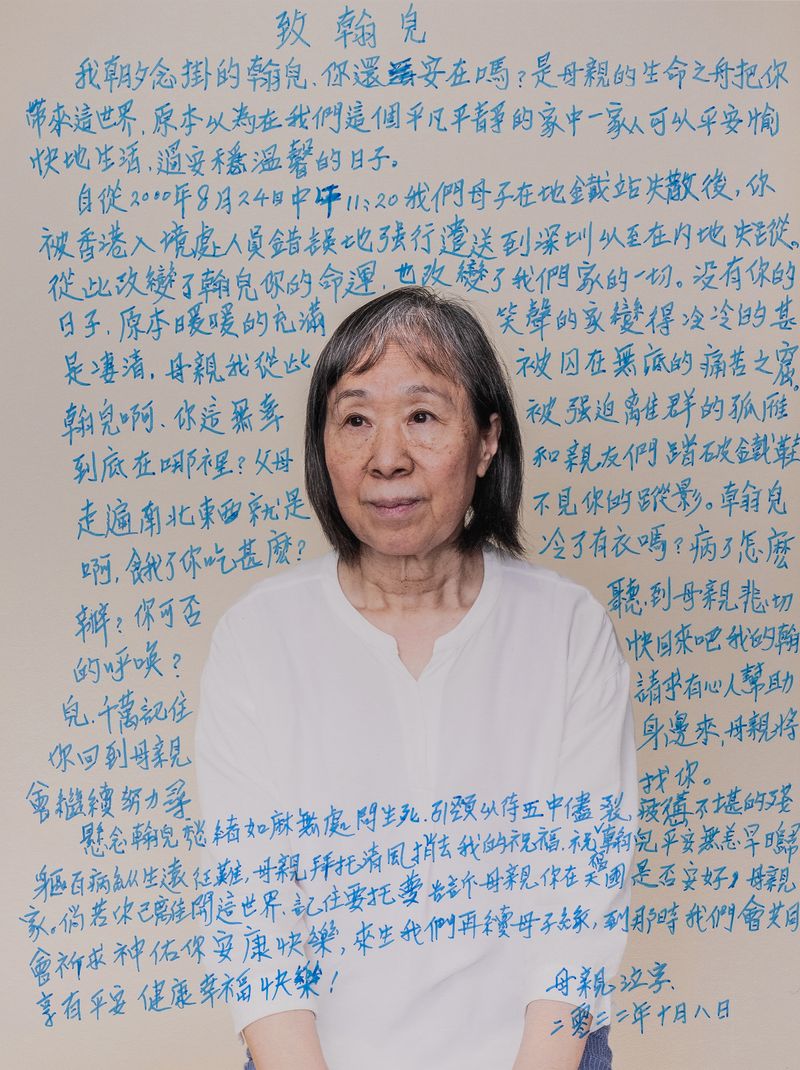 致翰兒
我朝夕念掛的翰兒、你還安在嗎？是母親的生命之舟把你
帶來這世界，原本以為在我們這個平凡平靜的家中一家人可以平安愉
快地生活，過安穩溫馨的日子。
自從2000年8月24日中午11:20我們母子在地鐵站失散後，你
被香港入境處人員錯誤地強行遣送到深圳以至在內地失蹤。
從此改變了翰兒你的命運，也改變了我們家的一切。没有你的
日子，原本暖暖的充滿 笑聲的家變得冷冷的甚
是凄清，母親我從此 被囚在無底的痛苦之窟。
翰兒啊、你這無辜 被强迫離群的孤雁
到底在哪裡？父母 和親友們踏破鐵鞋
走遍南北東西就是 不見你的蹤影。翰兒
啊，餓了你吃甚麼？ 冷了有衣嗎？病了怎麼
辦？你可否 聽到母親悲切
的呼喚？ 快回來吧我的翰
兒、千萬記住 請求有心人幫助
你回到母親 身邊來，母親將
會繼續努力尋 找你。
懸念翰兒愁緒如麻無處問生死、引頸以待五中儘裂疲憊不堪的殘
軀百病叢生遠征難，母親拜托清風捎去我的祝福，祝翰兒平安無恙早日歸
家。倘若你已離開這世界、記住要托夢告訴母親你在天國是否安好，母親
會祈求神佑你安康快樂，來生我們再續母子緣，到那時我們會共同
享有平安健康幸福快樂！
母親
二零二二年十月八日